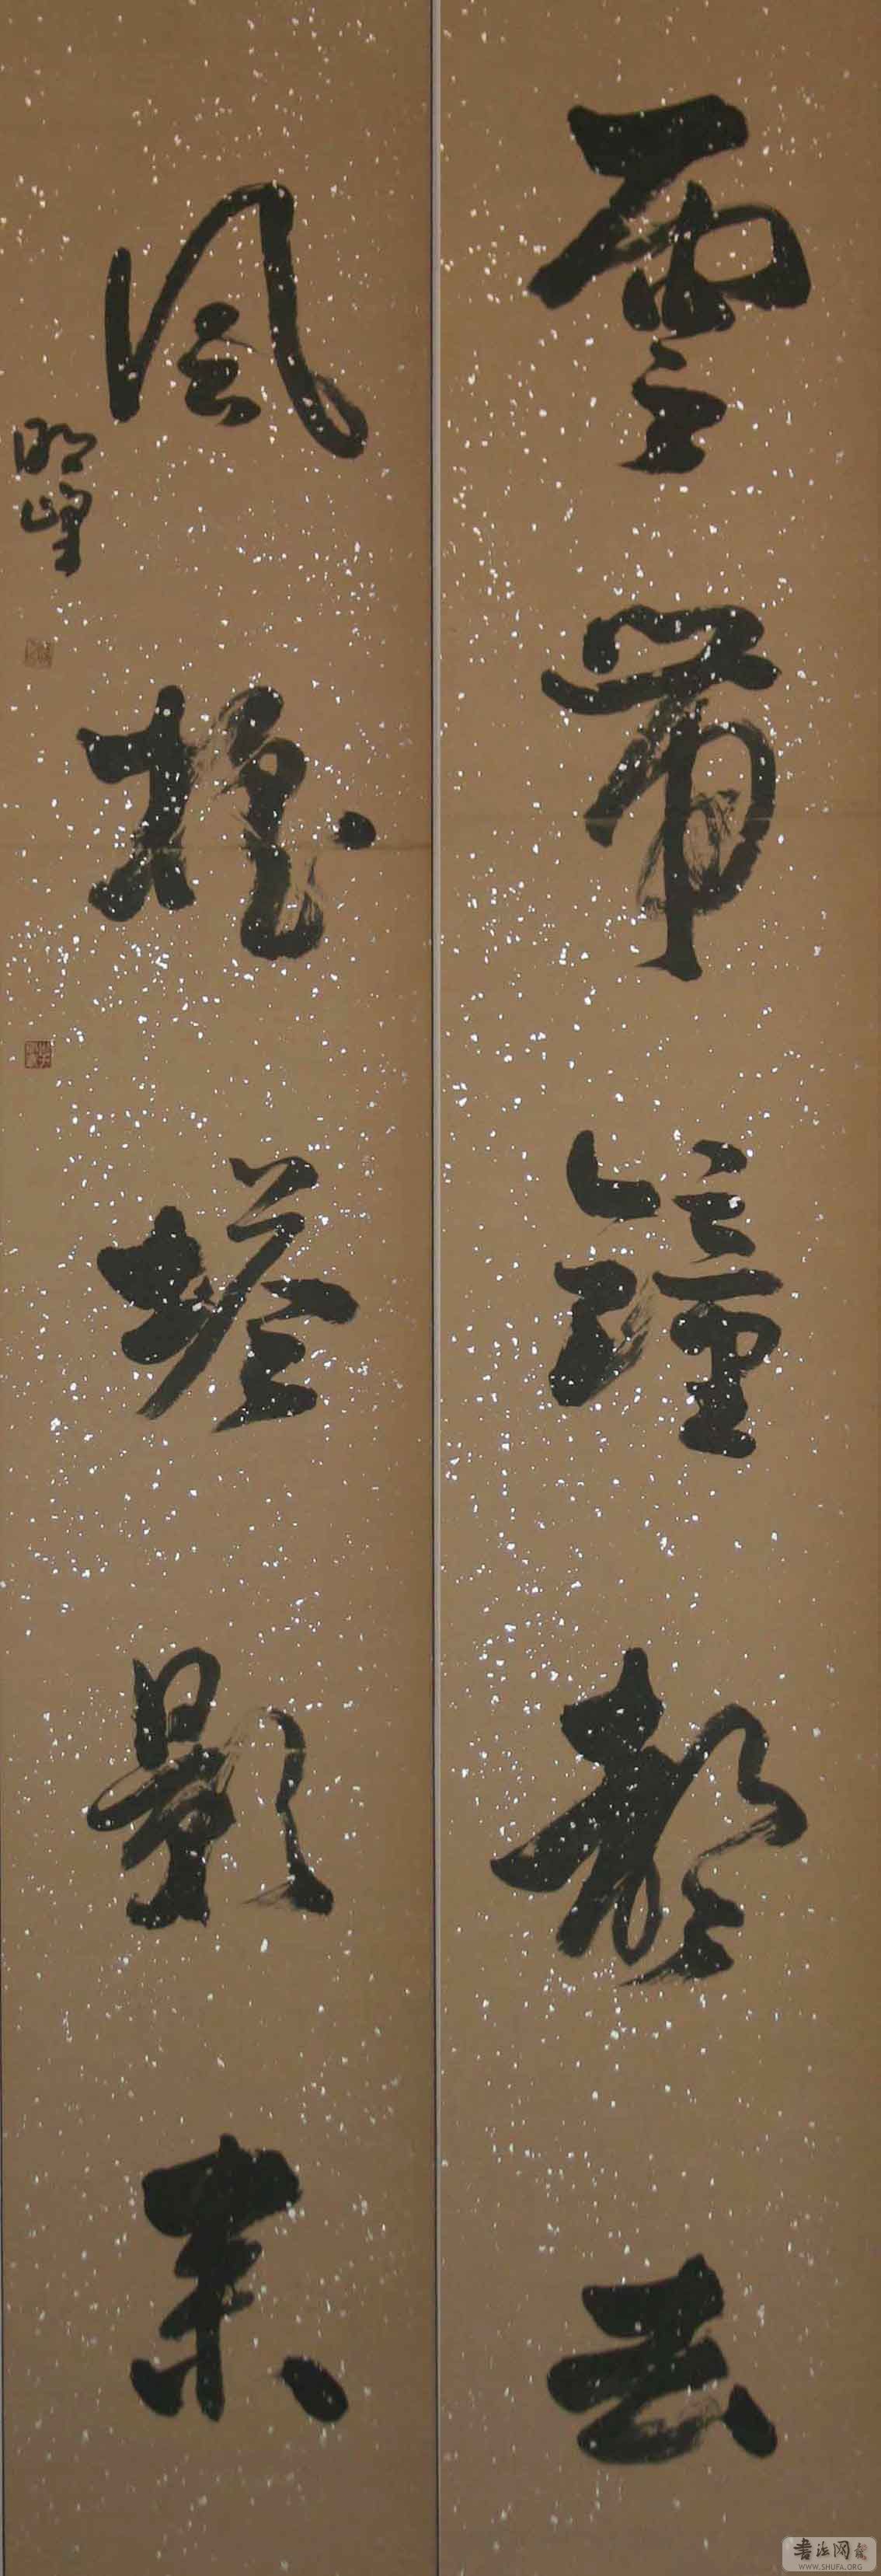 雲帶鐘聲去
風搖塔影來
書法网
WWW.SHUFA.ORG